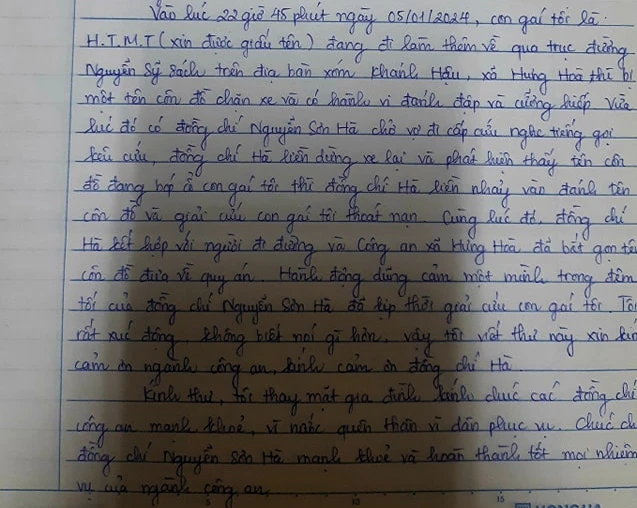 Vào lúc 22 giờ 45 phút ngày 05/01/2024, con gái tôi là
H.T.M.T (xin được giấu tên) đang đi làm thêm về qua trục đường
Nguyễn Sỹ Sách trên địa bàn xóm Khánh Hậu, xã Hưng Hoà thì bị
một tên côn đồ chặn xe và có hành vi đánh đập và cưỡng hiếp. Vừa
lúc đó có đồng chí Nguyễn Sơn Hà chở vợ đi cấp cứu nghe tiếng gọi
kêu cứu, đồng chí Hà liền dừng xe lại và phát hiện thấy tên côn
đồ đang bóp cổ con gái tôi thì đồng chí Hà liền nhảy vào đánh tên
côn đồ và giải cứu con gái tôi thoát nạn. Cùng lúc đó, đồng chí
Hà kết hợp với người đi đường và Công an xã Hưng Hoà đã bắt gọn tên
côn đồ đưa về quy án. Hành động dũng cảm một mình trong đêm
tối của đồng chí Nguyễn Sơn Hà đã kịp thời giải cứu con gái tôi. Tôi
rất xúc động, không biết nói gì hơn, vậy tôi viết thư này xin kính
cảm ơn ngành công an, kính cảm ơn đồng chí Hà.
Kính thư, tôi thay mặt gia đình kính chúc các đồng chí
công an mạnh khoẻ, vì nước quên thân vì dân phục vụ. Chúc
đồng chí Nguyễn Sơn Hà mạnh khoẻ và hoàn thành tốt mọi nhiệm
vụ của ngành công an.
10 15